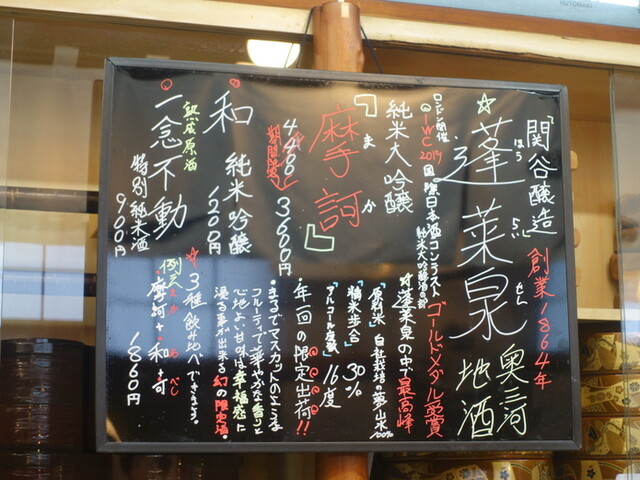 「関谷醸造」創業1864年
☆蓬莱泉 奥三河地酒
ほう らい せん
ロンドン開催
IWC2019国際日本酒コンテストゴールドメダル受賞
純米大吟醸酒の部
純米大吟醸
☆蓬莱泉の中で最高峰
「原料米」自社栽培の夢山水100%
「精米歩合」30%
「アルコール度数」16度
『摩訶』
まか
期間限定
3600円
・年一回の限定出荷!!
・まるでマスカットのような
フルーティで華やかな香りと
心地よい甘味は幸福感に
浸る事が出来る幻の限定酒。
和 純米吟醸
1200円
☆3種飲みめべできます。
熟成原酒
一念不動
特別純米酒
900円
例えば
・摩訶+・和+
1860円